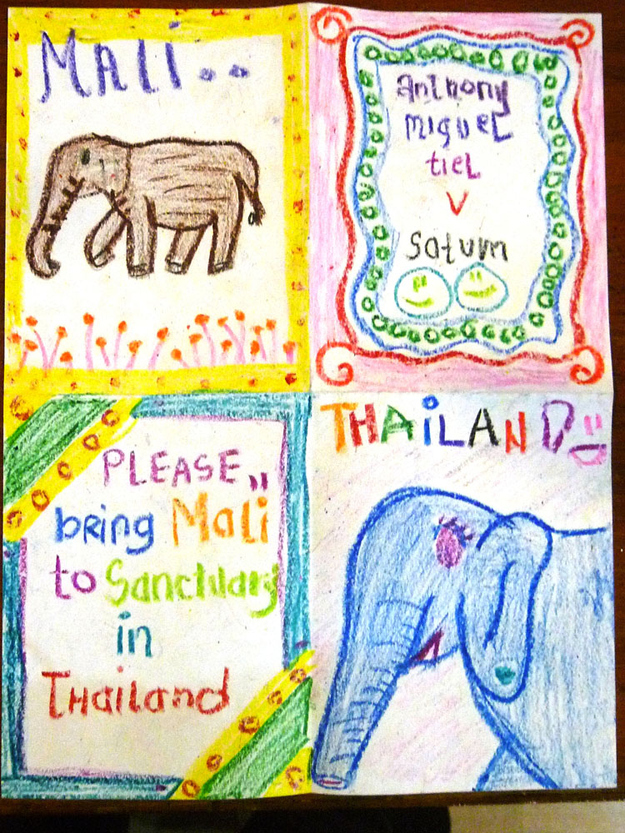 MALi..
Anthony
MIGUEL
tiEL
V
Saturn
PLEASE,,
bring Mali
to Sanctuary
in
THailand
THAiLAND